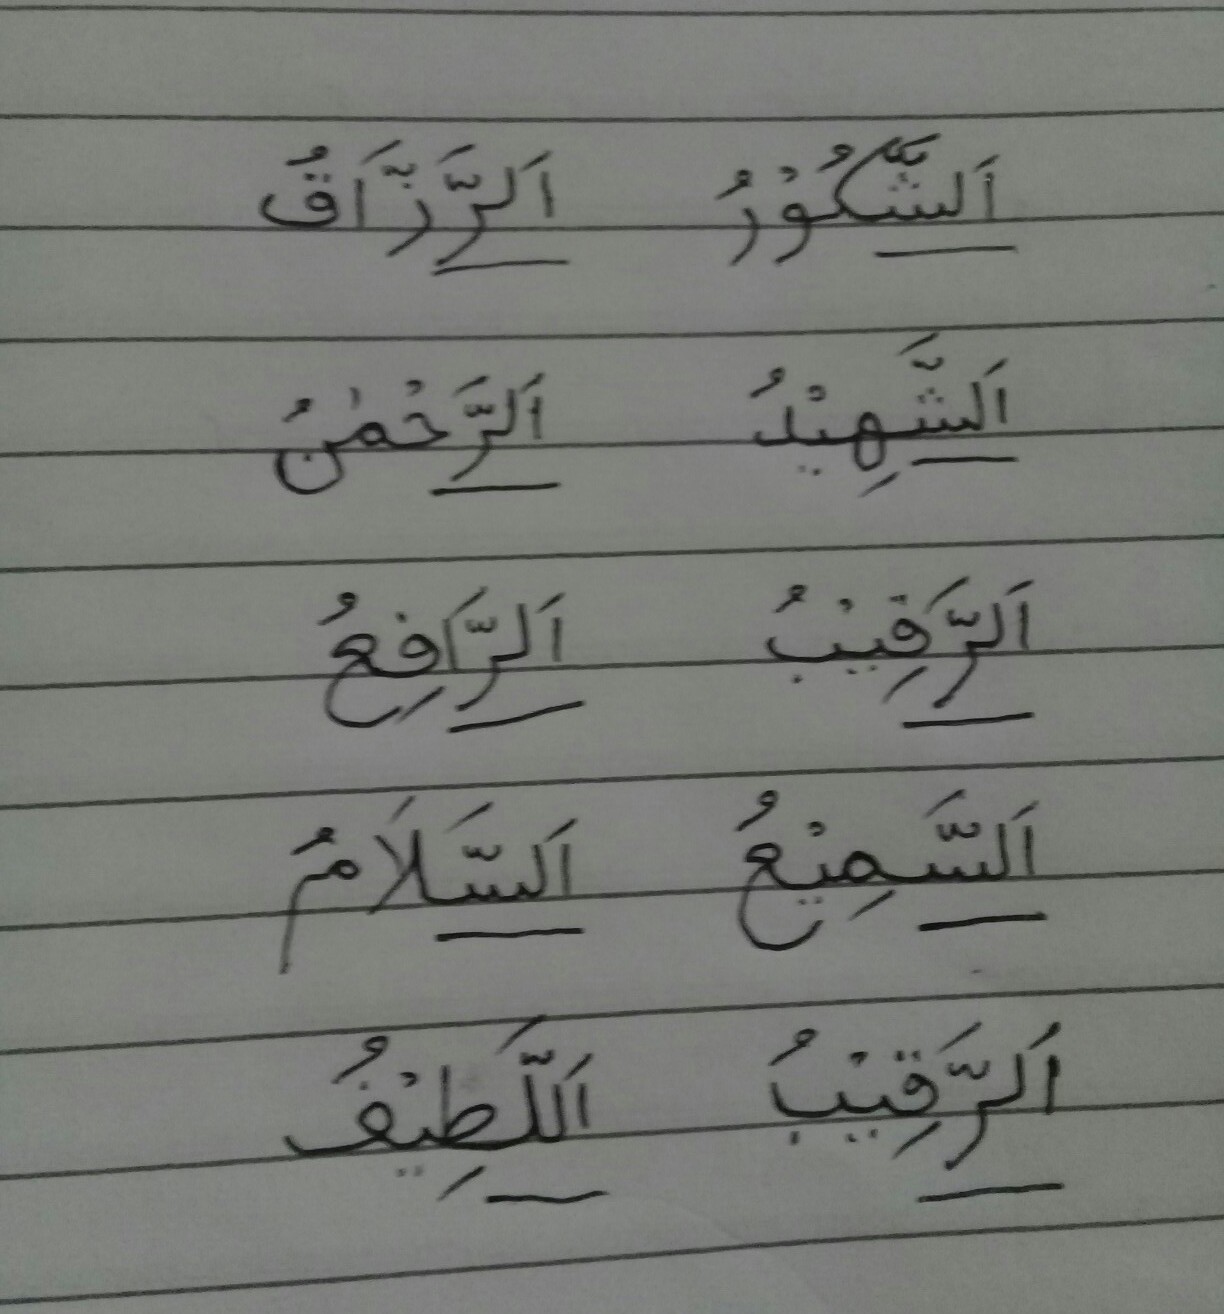 اَلشَّكُوْرُ اَلرَّزَّاقُ
اَلشَّهِيْدُ اَلرَّحْمٰنُ
اَلرَّقِيْبُ اَلرَّافِعُ
اَلسَّمِيْعُ اَلسَّلَامُ
اَلرَّقِيْبُ اَللَّطِيْفُ